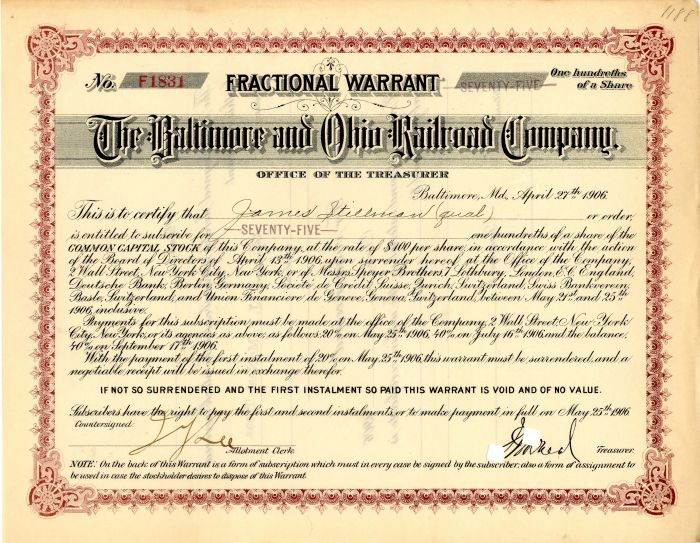 1188
No. F1831 FRACTIONAL WARRANT SEVENTY-FIVE One hundreths
of a Share
The Baltimore and Ohio Railroad Company.
OFFICE OF THE TREASURER
Baltimore, Md., April 27th 1906.
This is to certify that James Stillman (qual) or order,
is entitled to subscribe for SEVENTY-FIVE one hundreths of a share of the
COMMON CAPITAL STOCK of this Company, at the rate of $100 per share, in accordance with the action
of the Board of Directors of April 13th 1906, upon surrender hereof at the Office of the Company,
2 Wall Street, New York City, New York, or of Messrs Speyer Brothers, 7 Lothbury, London, E.C. England,
Deutsche Bank, Berlin, Germany, Société de Crédit Suisse, Zurich, Switzerland, Swiss Bankverein,
Basle, Switzerland, and Union Financiere de Geneve, Geneva, Switzerland, between May 21st and 25th
1906, inclusive.
Payments for this subscription must be made at the office of the Company, 2 Wall Street, New York
City, New York, or its agencies as above, as follows, 20% on May 25th 1906, 40% on July 16th 1906, and the balance,
40% on September 17th 1906.
With the payment of the first instalment of 20% on May 25th 1906, this warrant must be surrendered, and a
negotiable receipt will be issued in exchange therefor.
IF NOT SO SURRENDERED AND THE FIRST INSTALMENT SO PAID THIS WARRANT IS VOID AND OF NO VALUE.
Subscribers have the right to pay the first and second instalments, or to make payment in full on May 25th 1906
Countersigned:
Allotment Clerk. Treasurer.
NOTE: On the back of this Warrant is a form of subscription which must in every case be signed by the subscriber, also a form of assignment to
be used in case the stockholder desires to dispose of this Warrant.